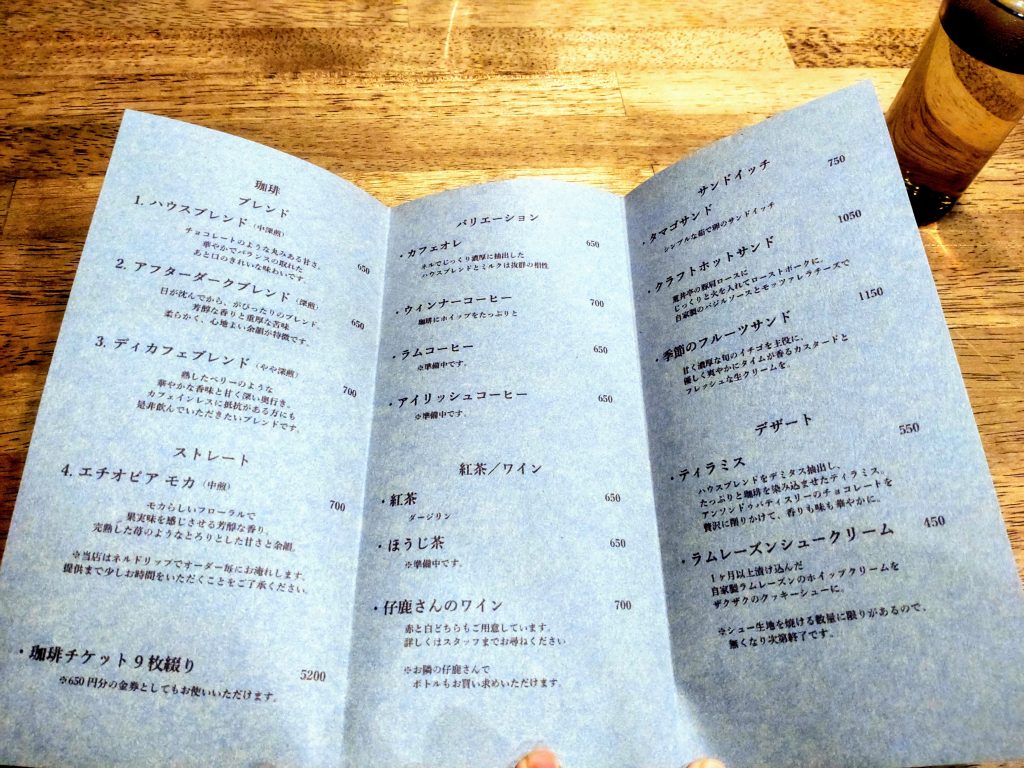 珈琲
ブレンド
1. ハウスブレンド（中深煎）
チョコレートのような丸みある甘さ。 650
華やかでバランスの取れた
あと口のきれいな味わいです。
2. アフターダークブレンド（深煎）
日が沈んでから、がぴったりのブレンド。 650
芳醇な香りと重厚な苦味
柔らかく、心地よい余韻が特徴です。
3. ディカフェブレンド（やや深煎）
熟したベリーのような 700
華やかな香味と甘く深い奥行き。
カフェインレスに抵抗がある方にも
是非飲んでいただきたいブレンドです。
ストレート
4. エチオピア モカ（中煎）
モカらしいフローラルで 700
果実味を感じさせる芳醇な香り
完熟した苺のようなとろりとした甘さと余韻。
※当店はネルドリップでオーダー毎にお淹れします。
提供まで少しお時間をいただくことをご了承ください。
・珈琲チケット９枚綴り 5200
※650円分の金券としてもお使いいただけます。
バリエーション
・カフェオレ 650
ネルでじっくり濃厚に抽出した
ハウスブレンドとミルクは抜群の相性
・ウィンナーコーヒー 700
珈琲にホイップをたっぷりと
・ラムコーヒー 650
※準備中です。
・アイリッシュコーヒー 650
※準備中です。
紅茶／ワイン
・紅茶 650
ダージリン
・ほうじ茶 650
※準備中です。
・仔鹿さんのワイン 700
赤と白どちらもご用意しています。
詳しくはスタッフまでお尋ねください
※お隣の仔鹿さんで
ボトルもお買い求めいただけます。
サンドイッチ
・タマゴサンド 750
シンプルな茹で卵のサンドイッチ
・クラフトホットサンド 1050
荒井亭の豚肩ロースに
じっくりと火を入れてローストポークに。
自家製のバジルソースとモッツァレラチーズで
・季節のフルーツサンド 1150
甘く濃厚な旬のイチゴを主役に、
優しく爽やかにタイムが香るカスタードと
フレッシュな生クリームを。
デザート
・ティラミス 550
ハウスブレンドをデミタス抽出し、
たっぷりと珈琲を染み込ませたティラミス。
アンソンドゥパティスリーのチョコレートを
贅沢に削りかけて、香りも味も華やかに。
・ラムレーズンシュークリーム 450
１ヶ月以上漬け込んだ
自家製ラムレーズンのホイップクリームを
ザクザクのクッキーシューに。
※シュー生地を焼ける数量に限りがあるので、
無くなり次第終了です。